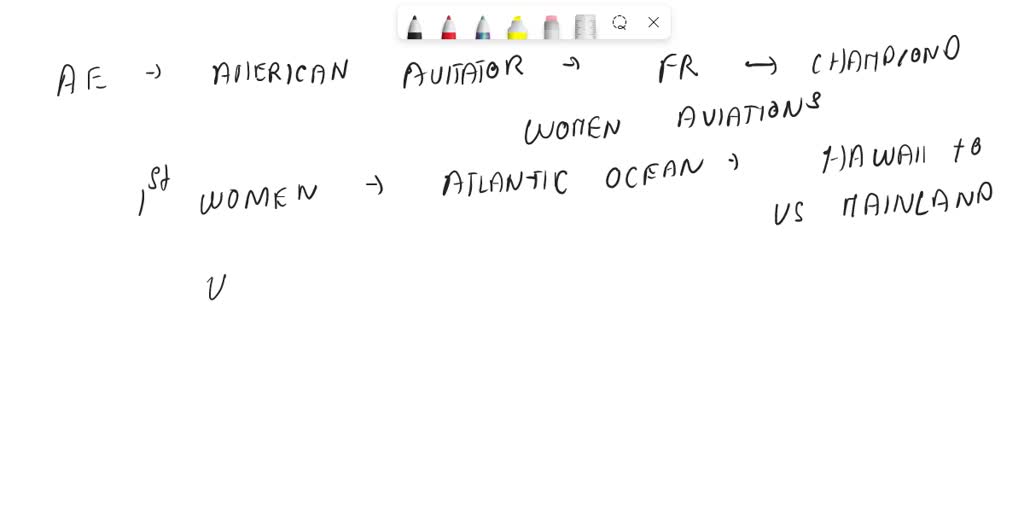 AE → AMERICAN AUITATOR → FR ↔ CHAMPIOND
WOMEN AVIATIONS
1st WOMEN → ATLANTIC OCEAN → HAWAII to
US MAINLAND
U